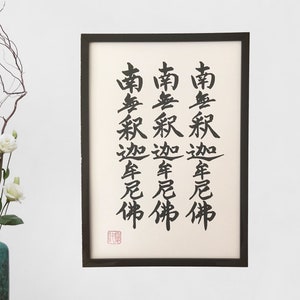 南無釈迦牟尼佛
南無釈迦牟尼佛
南無釈迦牟尼佛